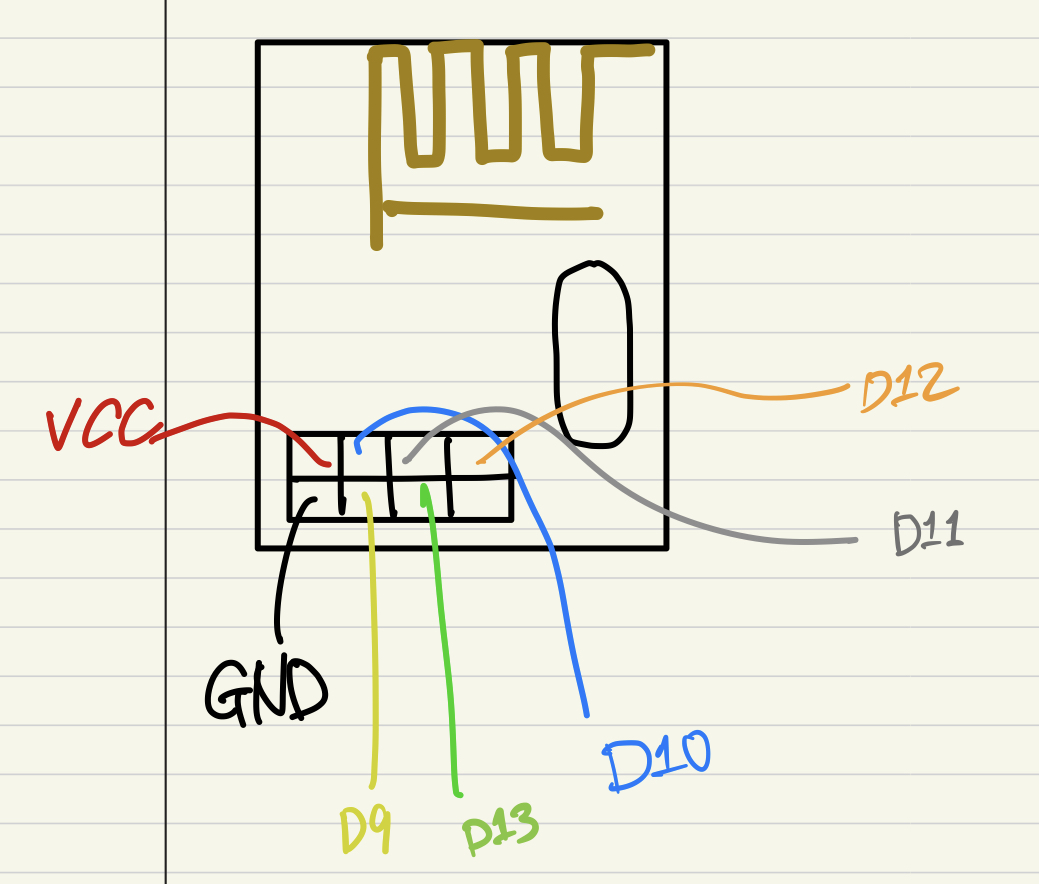 VCC
D12
D11
GND
D10
D9
D13